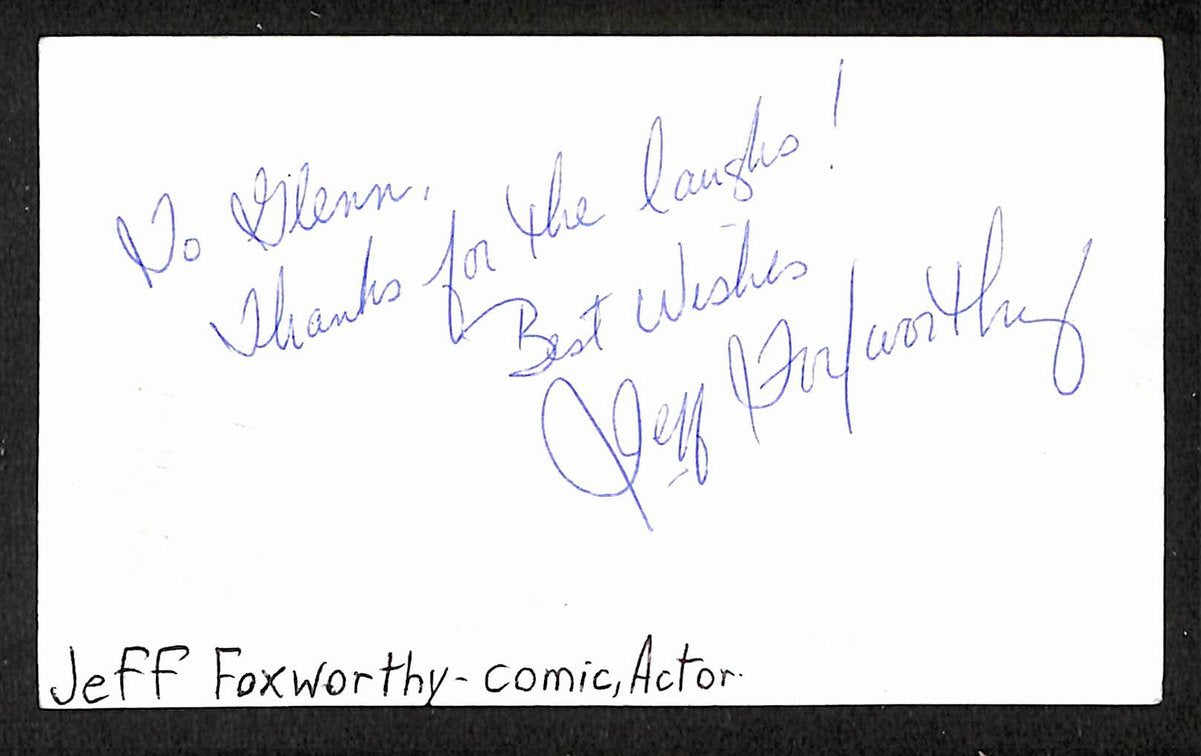 To Glenn,
Thanks for the laughs!
Best Wishes
Jeff Foxworthy
Jeff Foxworthy - comic, Actor.